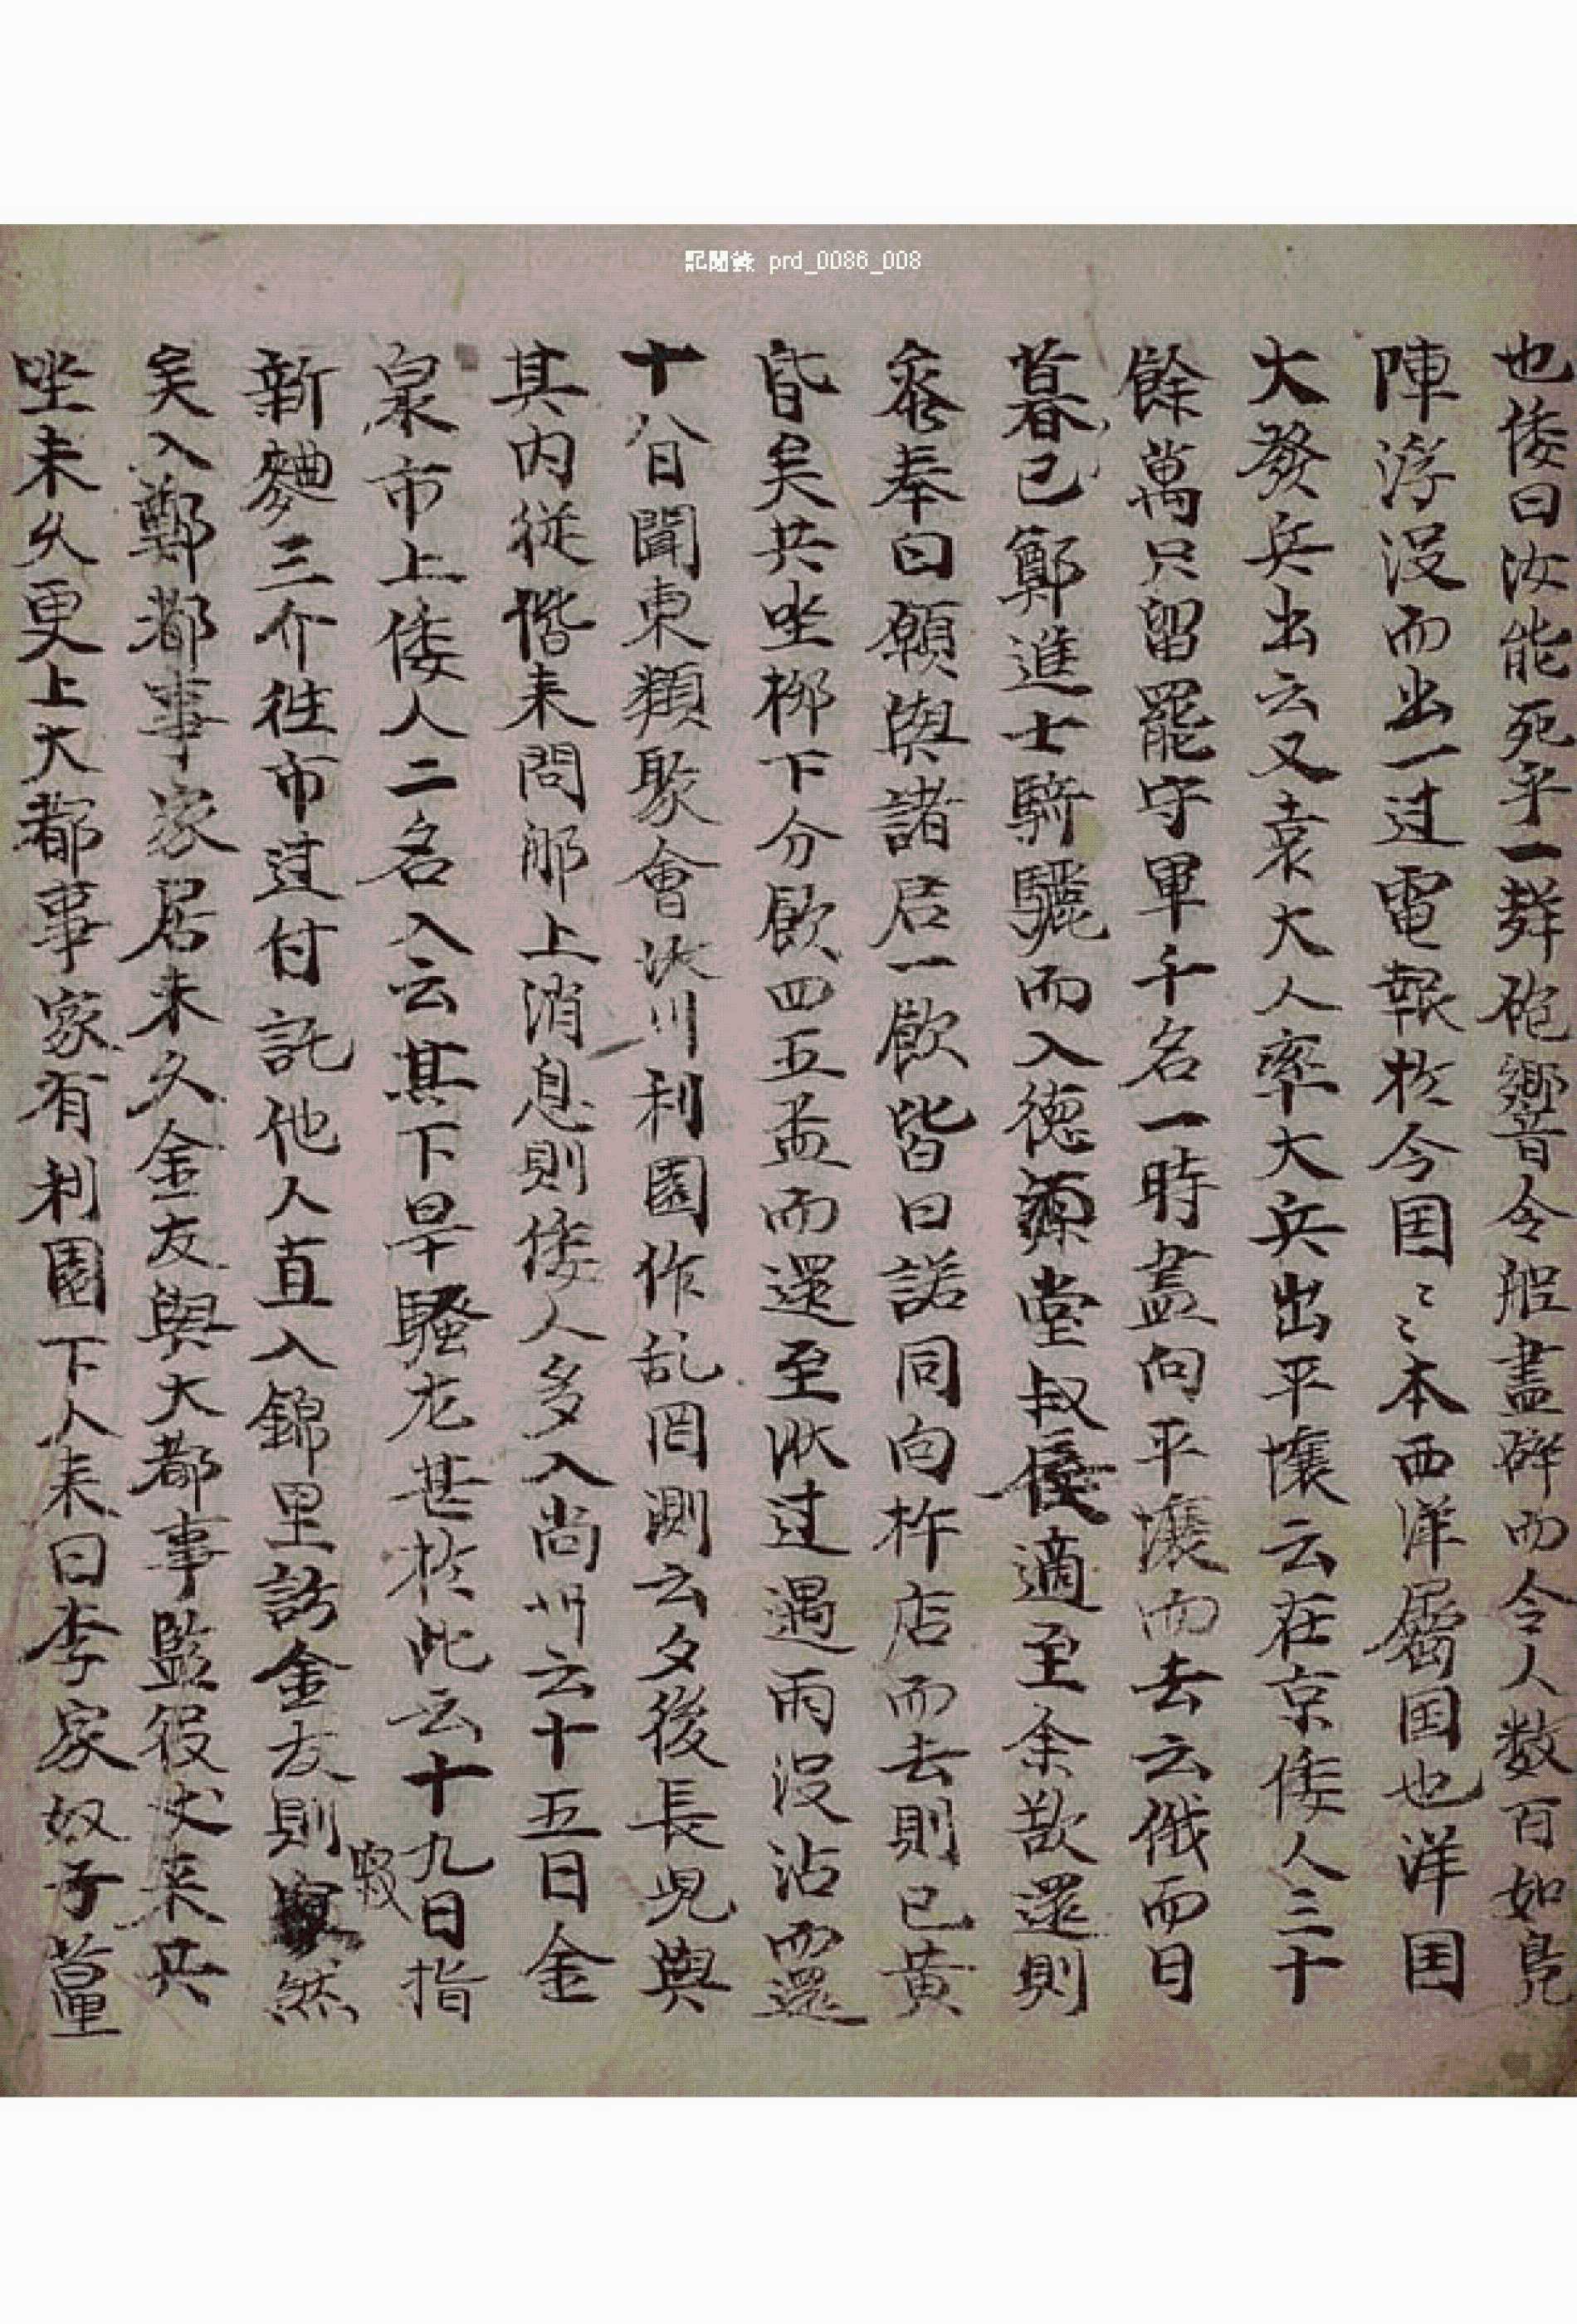 記聞錄 prd_0086_008
也倭曰汝能死乎一聲砲響令舡盡碎而令人数百如鳧
陣浮沒而出一过電報於今国〻〻本西洋屬国也洋国
大發兵出云又袁大人率大兵出平壤云在京倭人三十
餘萬只留罷守軍千名一時盡向平壤而去云俄而日
暮已鄭進士騎驢而入德源堂叔侵適至余歆還則
奉曰願與諸君一飮皆曰諾同向杵店而去則已黃
昏矣共坐柳下分飮四五盃而還至狀过遇雨沒沾而還
十八日聞東類聚會沃川利園作乱罔測云夕後長児與
其內從偕来問那上消息則倭人多入尚州云十五日金
泉市上倭人二名入云其下旱騷尤甚於此云十九日指
新麯三介往市过付託他人直入錦里訪金友則寂然
矣入鄭都事家居未久金友與大都事監役丈来共
坐未久更上大都事家有利園下人来曰李家奴子